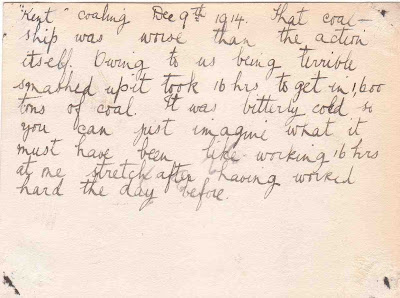 "Kent" coaling Dec 9th 1914. That coal-
ship was worse than the action
itself. Owing to us being terrible
smashed up it took 16 hrs to get in 1,600
tons of coal. It was bitterly cold so
you can just imagine what it
must have been like working 16 hrs
at one stretch after having worked
hard the day before.